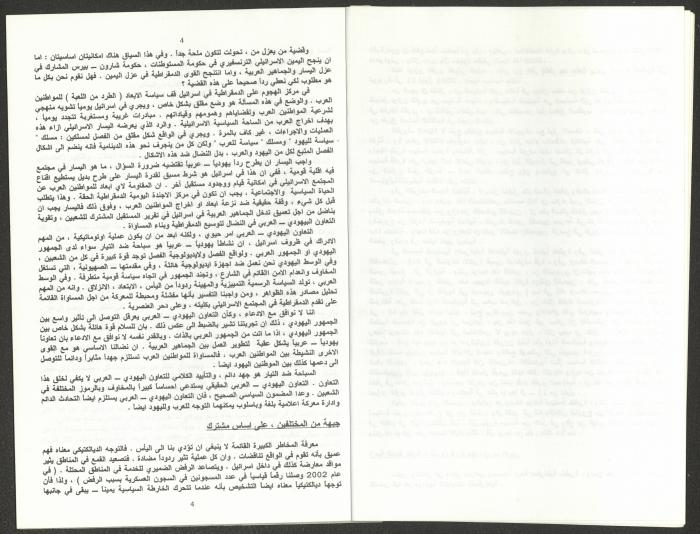 4
وقضية من يعزل من ، تحولت لتكون ملحة جداً . وفي هذا السياق هناك امكانيتان اساسيتان : اما
ان ينجح اليمين الاسرائيلي الترنسفيري في حكومة المستوطنات ، حكومة شارون – بيرس المشارك في
عزل اليسار والجماهير العربية ، واما انتنجح القوى الدمقراطية في عزل اليمين . فهل نقوم نحن بكل ما
هو مطلوب لكي نعطي رداً صحيحاً على هذه القضية ؟
في مركز الهجوم على الدمقراطية في اسرائيل قف سياسة الابعاد ( الطرد من اللعبة ) للمواطنين
العرب . والوضع في هذه المسألة هو وضع مقلق بشكل خاص ، ويجري في اسرائيل يومياً تشويه منهجي
لشرعية المواطنين العرب ولقضاياهم وهمومهم وقياداتهم . مبادرات غريبة ومستغربة تتجدد يومياً ،
بهدف اخراج العرب من الساحة السياسية الاسرائيلية . والرد الذي يعرضه اليسار الاسرائيلي ازاء هذه
العمليات والاجراءات ، غير كاف بالمرة . ويجري في الواقع شكل مقلق من الفصل لمسلكين : مسلك "
سياسة لليهود " ومسلك " سياسة للعرب " ولكن كل من ينجرف نحو هذه الدينامية فانه ينضم الى اشكال
الفصل المتبع لكل من اليهود والعرب ، بدل النضال ضد هذه الاشكال .
واجب اليسار ان يطرح رداً يهودياً – عربياً تقتضيه ضرورة السؤال ، ما هو اليسار في مجتمع
فيه اقلية قومية ، ففي ان هذا في اسرائيل هو شرط مسبق لقدرة اليسار على طرح بديل يستطيع اقناع
المجتمع الاسرائيلي في امكانية قيام ووجود مستقبل آخر . ان المقاومة لاي ابعاد للمواطنين العرب عن
الحياة السياسية والاجتماعية ، يجب ان تكون في مركز الاجندة اليومية الدمقراطية الحقة . وهذا يتطلب
قبل كل شيء ، وقفة حقيقية ضد نزعة ابعاد او اخراج المواطنين العرب ، وفوق ذلك فاليسار يجب ان
يناضل من اجل تعميق تدخل الجماهير العربية في اسرائيل في تقرير المستقبل المشترك للشعبين ، وتقوية
التعاون اليهودي – العربي في النضال لتوسيع الدمقراطية وبناء المساواة .
التعاون اليهودي – العربي امر حيوي ، ولكنه ابعد من ان يكون عملية اوتوماتيكية ، من المهم
الادراك في ظروف اسرائيل ، ان نشاطاً يهودياً – عربياً هو سباحة ضد التيار سواء لدى الجمهور
اليهودي او الجمهور العربي . ولواقع الفصل ولايديولوجية الفصل توجد قوة كبيرة في كل من الشعبين ،
وفي الوسط اليهودي نحن نعمل ضد اجهزة ايديولوجية هائلة ، وفي مقدمتها – الصهيونية ، التي تستغل
المخاوف وانعدام الامن القائم في الشارع ، وتجند الجمهور في اتجاه سياسة قومية متطرفة . وفي الوسط
العربي ، تولد السياسة الرسمية التمييزية والمهينة ردوداً من اليأس ، الابتعاد ، الانزلاق . وانه من المهم
تحليل مصادر هذه الظواهر ، ومن واجبنا التفسير بأنها مفشلة ومحبطة للمعركة من اجل المساواة القائمة
على تقدم الدمقراطية في المجتمع الاسرائيلي بكليته ، وعلى دحر العنصرية .
اننا لا نوافق مع الادعاء ، وكأن التعاون اليهودي – العربي يعرقل التوصل الى تأثير واسع بين
الجمهور اليهودي ، ذلك ان تجربتنا تشير بالضبط الى عكس ذلك . بان للسلام قوة هائلة بشكل خاص بين
الجمهور اليهودي ، اذا ما اتت من الجمهور العربي بالذات . وبالقدر نفسه لا نوافق مع الادعاء بان تعاوناً
يهودياً – عربياً يشكل عقبة لتطوير العمل بين الجماهير العربية . ان نضالنا الاساسي هو مع القوى
الاخرى النشيطة بين المواطنين العرب ، فالمساواة للمواطنين العرب تستلزم جهداً مثابراً ودائماً للتوصل
الى دعمها كذلك بين المواطنين اليهود ايضاً .
السباحة ضد التيار هو جهد دائم ، والتأييد الكلامي للتعاون اليهودي – العربي لا يكفي لخلق هذا
التعاون . التعاون اليهودي – العربي الحقيقي يستدعي احساساً كبيراً بالمخاوف وبالرموز المختلفة في
الشعبين . وعدا المضمون السياسي الصحيح ، فان التعاون اليهودي – العربي يستلزم ايضاً التحادث الدائم
وادارة معركة اعلامية بلغة وباسلوب يمكنهما التوجه للعرب ولليهود ايضاً .
جبهة من المختلفين ، على اساس مشترك
معرفة المخاطر الكبيرة القائمة لا ينبغي ان تؤدي بنا الى اليأس . فالتوجه الديالكتيكي معناه فهم
عميق بأنه تقوم في الواقع تناقضات . وان كل عملية تثير ردوداً مضادة . فتصعيد القمع في المناطق يثير
مواقف معارضة كذلك في داخل اسرائيل . ويتصاعد الرفض الضميري للخدمة في المناطق المحتلة . ( في
عام 2002 وصلنا رقماً قياسياً في عدد المسجونين في السجون العسكرية بسبب الرفض ) ، ولذا فأن
توجهاً ديالكتيكياً معناه ايضاً التشخيص بأنه عندما تتحرك الخارطة السياسية يميناً – يبقى في جانبها
4